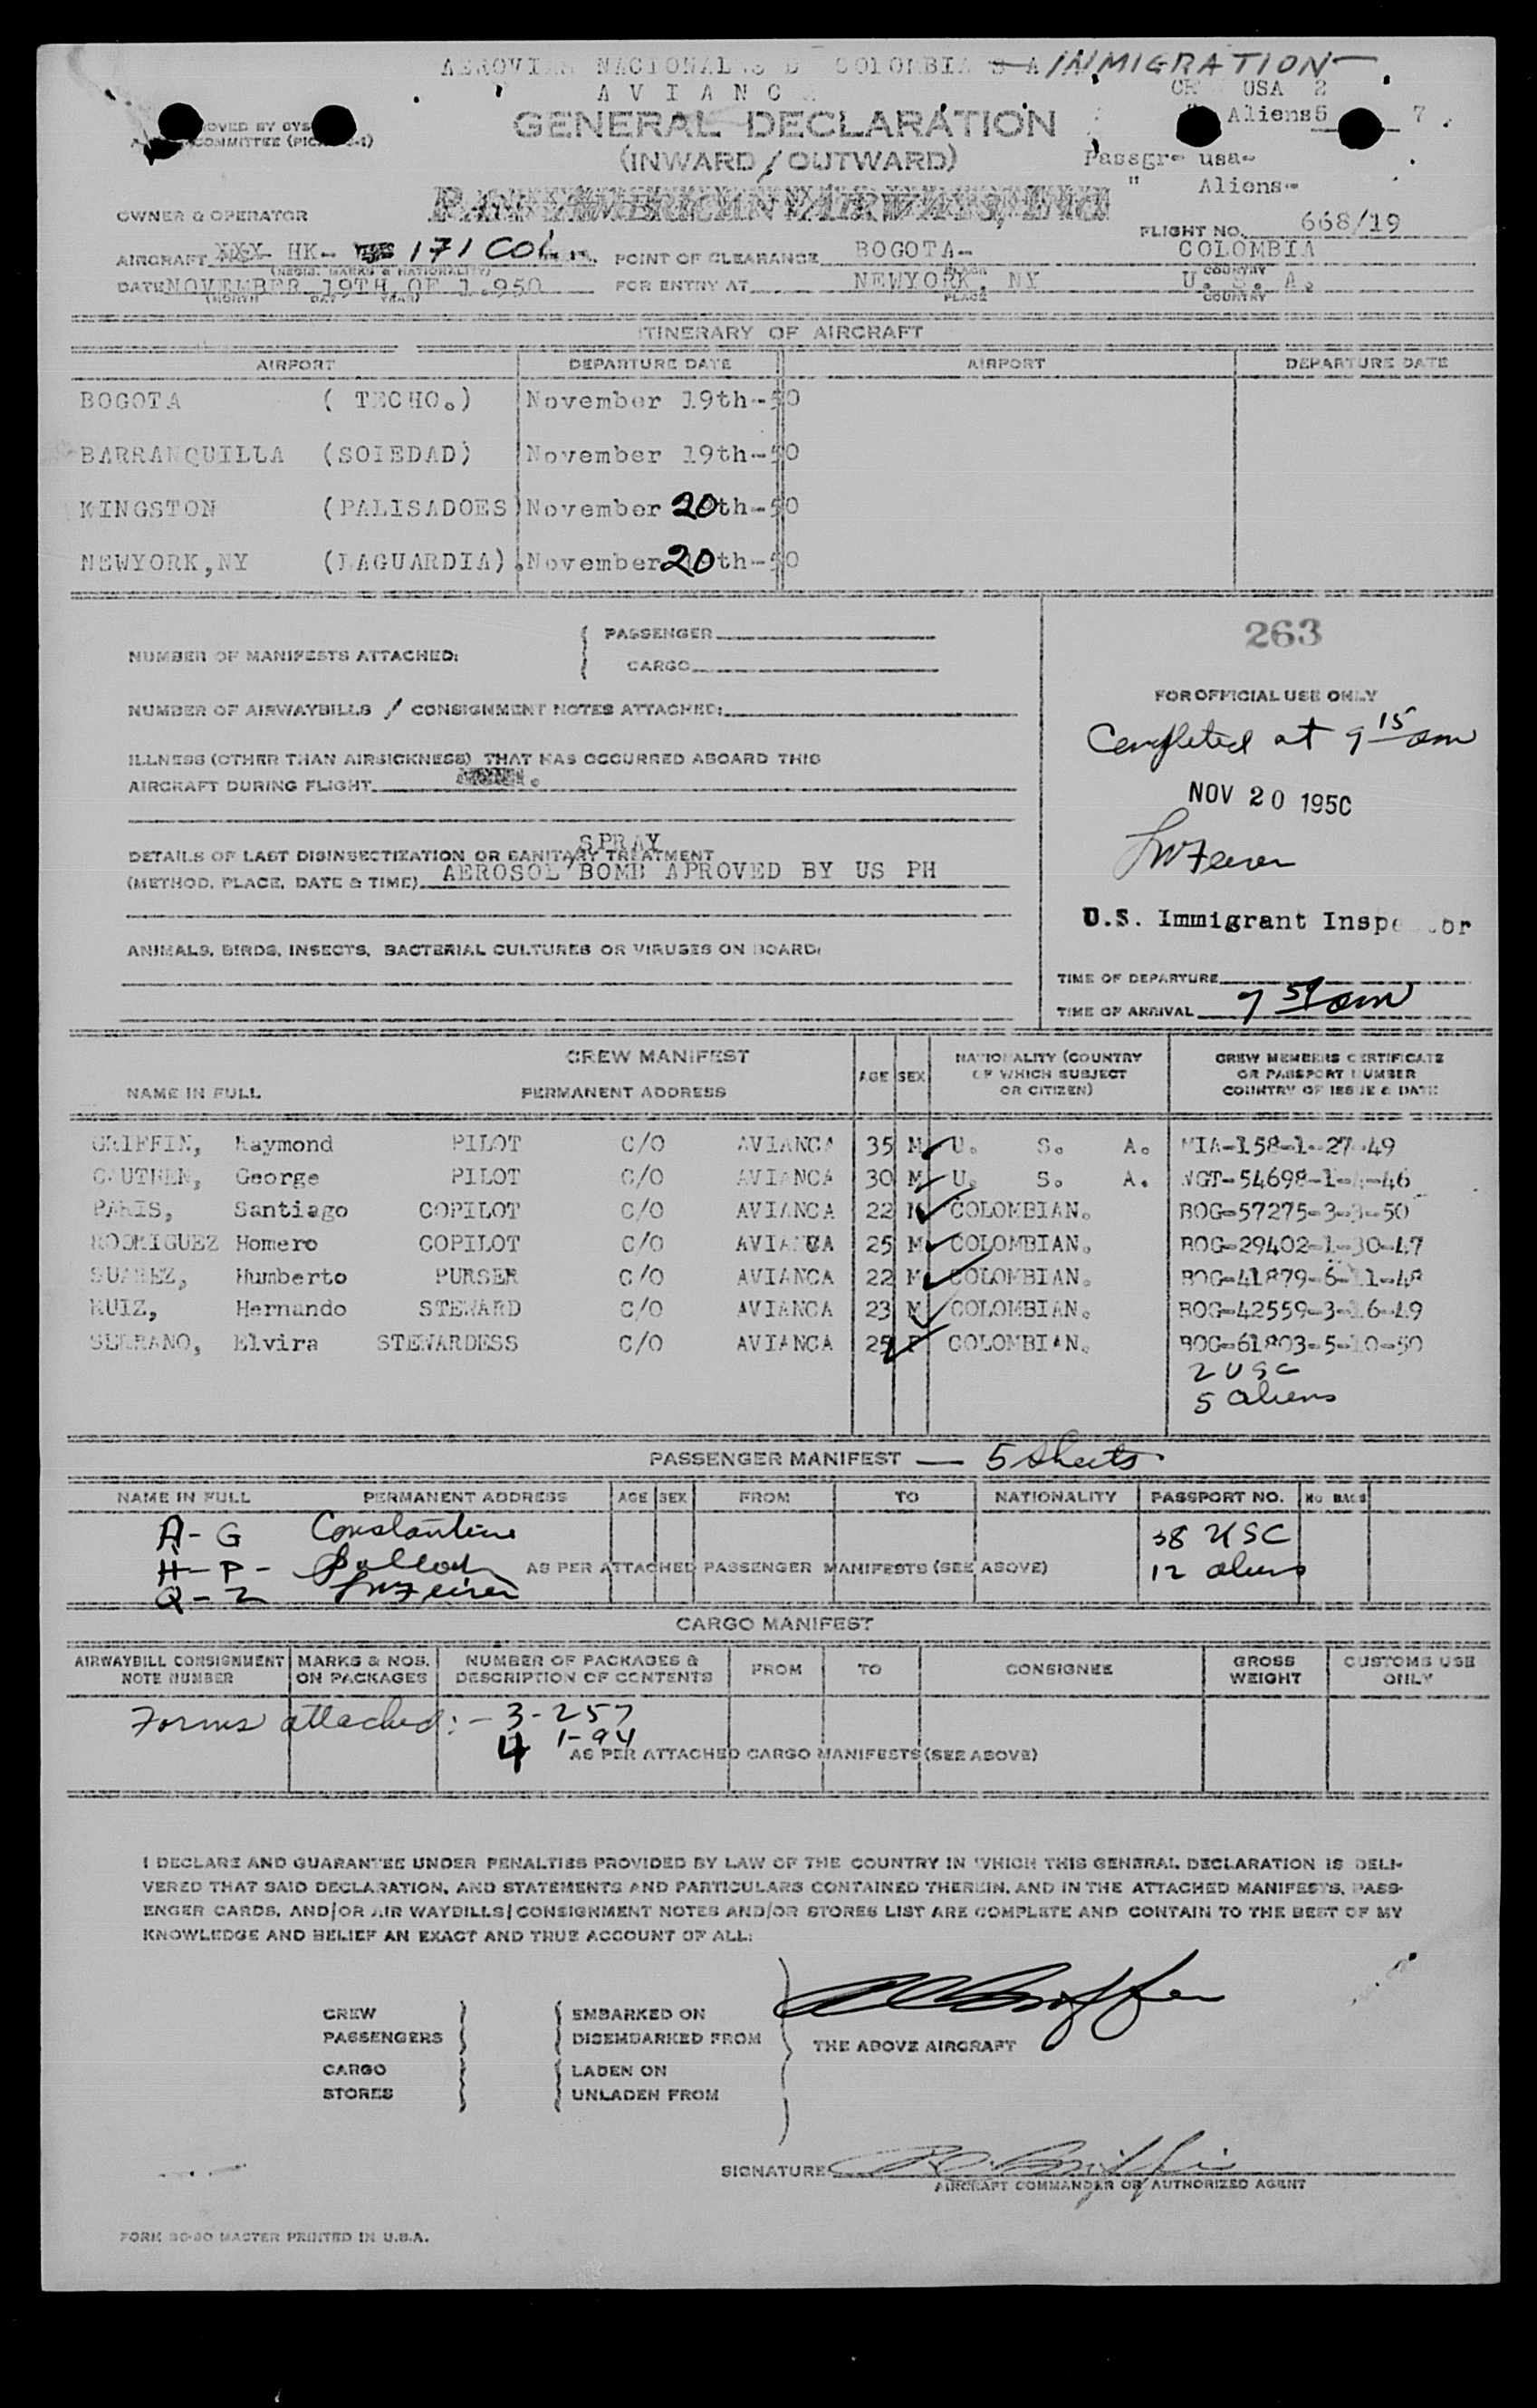 AEROVIAS NACIONALES D COLOMBIA S A INMIGRATION
AVIANCA
CR USA 2
" Aliens 5 7
GENERAL DECLARATION
(INWARD / OUTWARD)
Passgr- usa-
" Aliens-
PAN AMERICAN AIRWAYS, INC
OWNER & OPERATOR
FLIGHT NO. 668/19
AIRCRAFT XXX HK- 171 COL POINT OF CLEARANCE BOGOTA- COLOMBIA
(REGIS. MARKS & NATIONALITY) PLACE COUNTRY
DATE NOVEMBER 19TH OF 1.950 FOR ENTRY AT NEWYORK, NY U. S. A.
(MONTH DAY YEAR) PLACE COUNTRY
ITINERARY OF AIRCRAFT
AIRPORT DEPARTURE DATE AIRPORT DEPARTURE DATE
BOGOTA ( TECHO.) November 19th-50
BARRANQUILLA (SOIEDAD) November 19th-50
KINGSTON (PALISADOES) November 20th-50
NEWYORK,NY (LAGUARDIA). November 20th-50
263
NUMBER OF MANIFESTS ATTACHED: PASSENGER
CARGO
FOR OFFICIAL USE ONLY
NUMBER OF AIRWAYBILLS / CONSIGNMENT NOTES ATTACHED:
Completed at 9 15 am
ILLNESS (OTHER THAN AIRSICKNESS) THAT HAS OCCURRED ABOARD THIS
AIRCRAFT DURING FLIGHT
NOV 20 1950
DETAILS OF LAST DISINSECTIZATION OR SANITARY TREATMENT
SPRAY
(METHOD, PLACE, DATE & TIME) AEROSOL BOMB APROVED BY US PH
U.S. Immigrant Inspector
ANIMALS, BIRDS, INSECTS, BACTERIAL CULTURES OR VIRUSES ON BOARD:
TIME OF DEPARTURE
TIME OF ARRIVAL am
CREW MANIFEST
NAME IN FULL PERMANENT ADDRESS AGE SEX NATIONALITY (COUNTRY OF WHICH SUBJECT OR CITIZEN) CREW MEMBERS CERTIFICATE OR PASSPORT NUMBER COUNTRY OF ISSUE & DATE
GRIFFIN, Raymond PILOT C/O AVIANCA 35 M U. S. A. MIA-158-1-27-49
George PILOT C/O AVIANCA 30 M U. S. A.
PARIS, Santiago COPILOT C/O AVIANCA 22 M COLOMBIAN. BOG-57275-3-3-50
RODRIGUEZ Homero COPILOT C/O AVIANCA 25 M COLOMBIAN. BOG-29402-1-30-47
SUAREZ, Humberto PURSER C/O AVIANCA 22 M COLOMBIAN. BOG-41879-6-11-48
RUIZ, Hernando STEWARD C/O AVIANCA 23 M COLOMBIAN. BOG-42559-3-16-49
SERRANO, Elvira STEWARDESS C/O AVIANCA 25 F COLOMBIAN. BOG-61803-5-10-50
2 USC
5 aliens
PASSENGER MANIFEST — 5 sheets
NAME IN FULL PERMANENT ADDRESS AGE SEX FROM TO NATIONALITY PASSPORT NO. NO BAGS
A-G Constantine 38 USC
H-P- AS PER ATTACHED PASSENGER MANIFESTS (SEE ABOVE) 12 aliens
Q-Z
CARGO MANIFEST
AIRWAYBILL CONSIGNMENT NOTE NUMBER MARKS & NOS. ON PACKAGES NUMBER OF PACKAGES & DESCRIPTION OF CONTENTS FROM TO CONSIGNEE GROSS WEIGHT CUSTOMS USE ONLY
Forms attached:- 3-257
4 1-94
AS PER ATTACHED CARGO MANIFESTS (SEE ABOVE)
I DECLARE AND GUARANTEE UNDER PENALTIES PROVIDED BY LAW OF THE COUNTRY IN WHICH THIS GENERAL DECLARATION IS DELI-
VERED THAT SAID DECLARATION, AND STATEMENTS AND PARTICULARS CONTAINED THEREIN, AND IN THE ATTACHED MANIFESTS, PASS-
ENGER CARDS, AND/OR AIR WAYBILLS/CONSIGNMENT NOTES AND/OR STORES LIST ARE COMPLETE AND CONTAIN TO THE BEST OF MY
KNOWLEDGE AND BELIEF AN EXACT AND TRUE ACCOUNT OF ALL:
CREW EMBARKED ON
PASSENGERS DISEMBARKED FROM THE ABOVE AIRCRAFT
CARGO LADEN ON
STORES UNLADEN FROM
SIGNATURE
AIRCRAFT COMMANDER OR AUTHORIZED AGENT
FORM 30-80 MASTER PRINTED IN U.S.A.